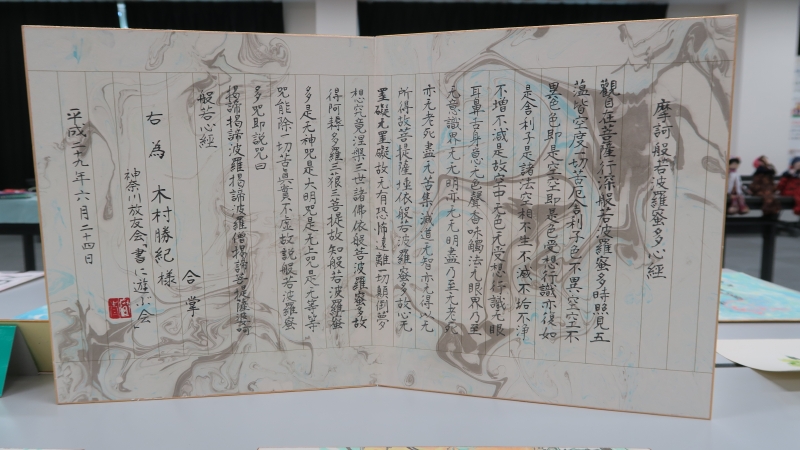 摩訶般若波羅蜜多心経
觀自在菩薩行深般若波羅蜜多時照見五
蘊皆空度一切苦厄舎利子色不異空空不
異色色即是空空即是色受想行識亦復如
是舎利子是諸法空相不生不滅不垢不浄
不増不滅是故空中无色无受想行識无眼
耳鼻舌身意无色聲香味觸法无眼界乃至
无意識界无无明亦无无明盡乃至无老死
亦无老死盡无苦集滅道无智亦无得以无
所得故菩提薩埵依般若波羅蜜多故心无
罣礙无罣礙故无有恐怖遠離一切顛倒夢
想究竟涅槃三世諸佛依般若波羅蜜多故
得阿耨多羅三藐三菩提故知般若波羅蜜
多是大神呪是大明呪是无上呪是无等等
呪能除一切苦真實不虚故説般若波羅蜜
多呪即説呪曰
掲諦掲諦波羅掲諦波羅僧掲諦菩提薩婆訶
般若心經
右為 木村勝紀様 合掌
神奈川放友会「書に遊ぶ会」
平成二十九年六月二十四日